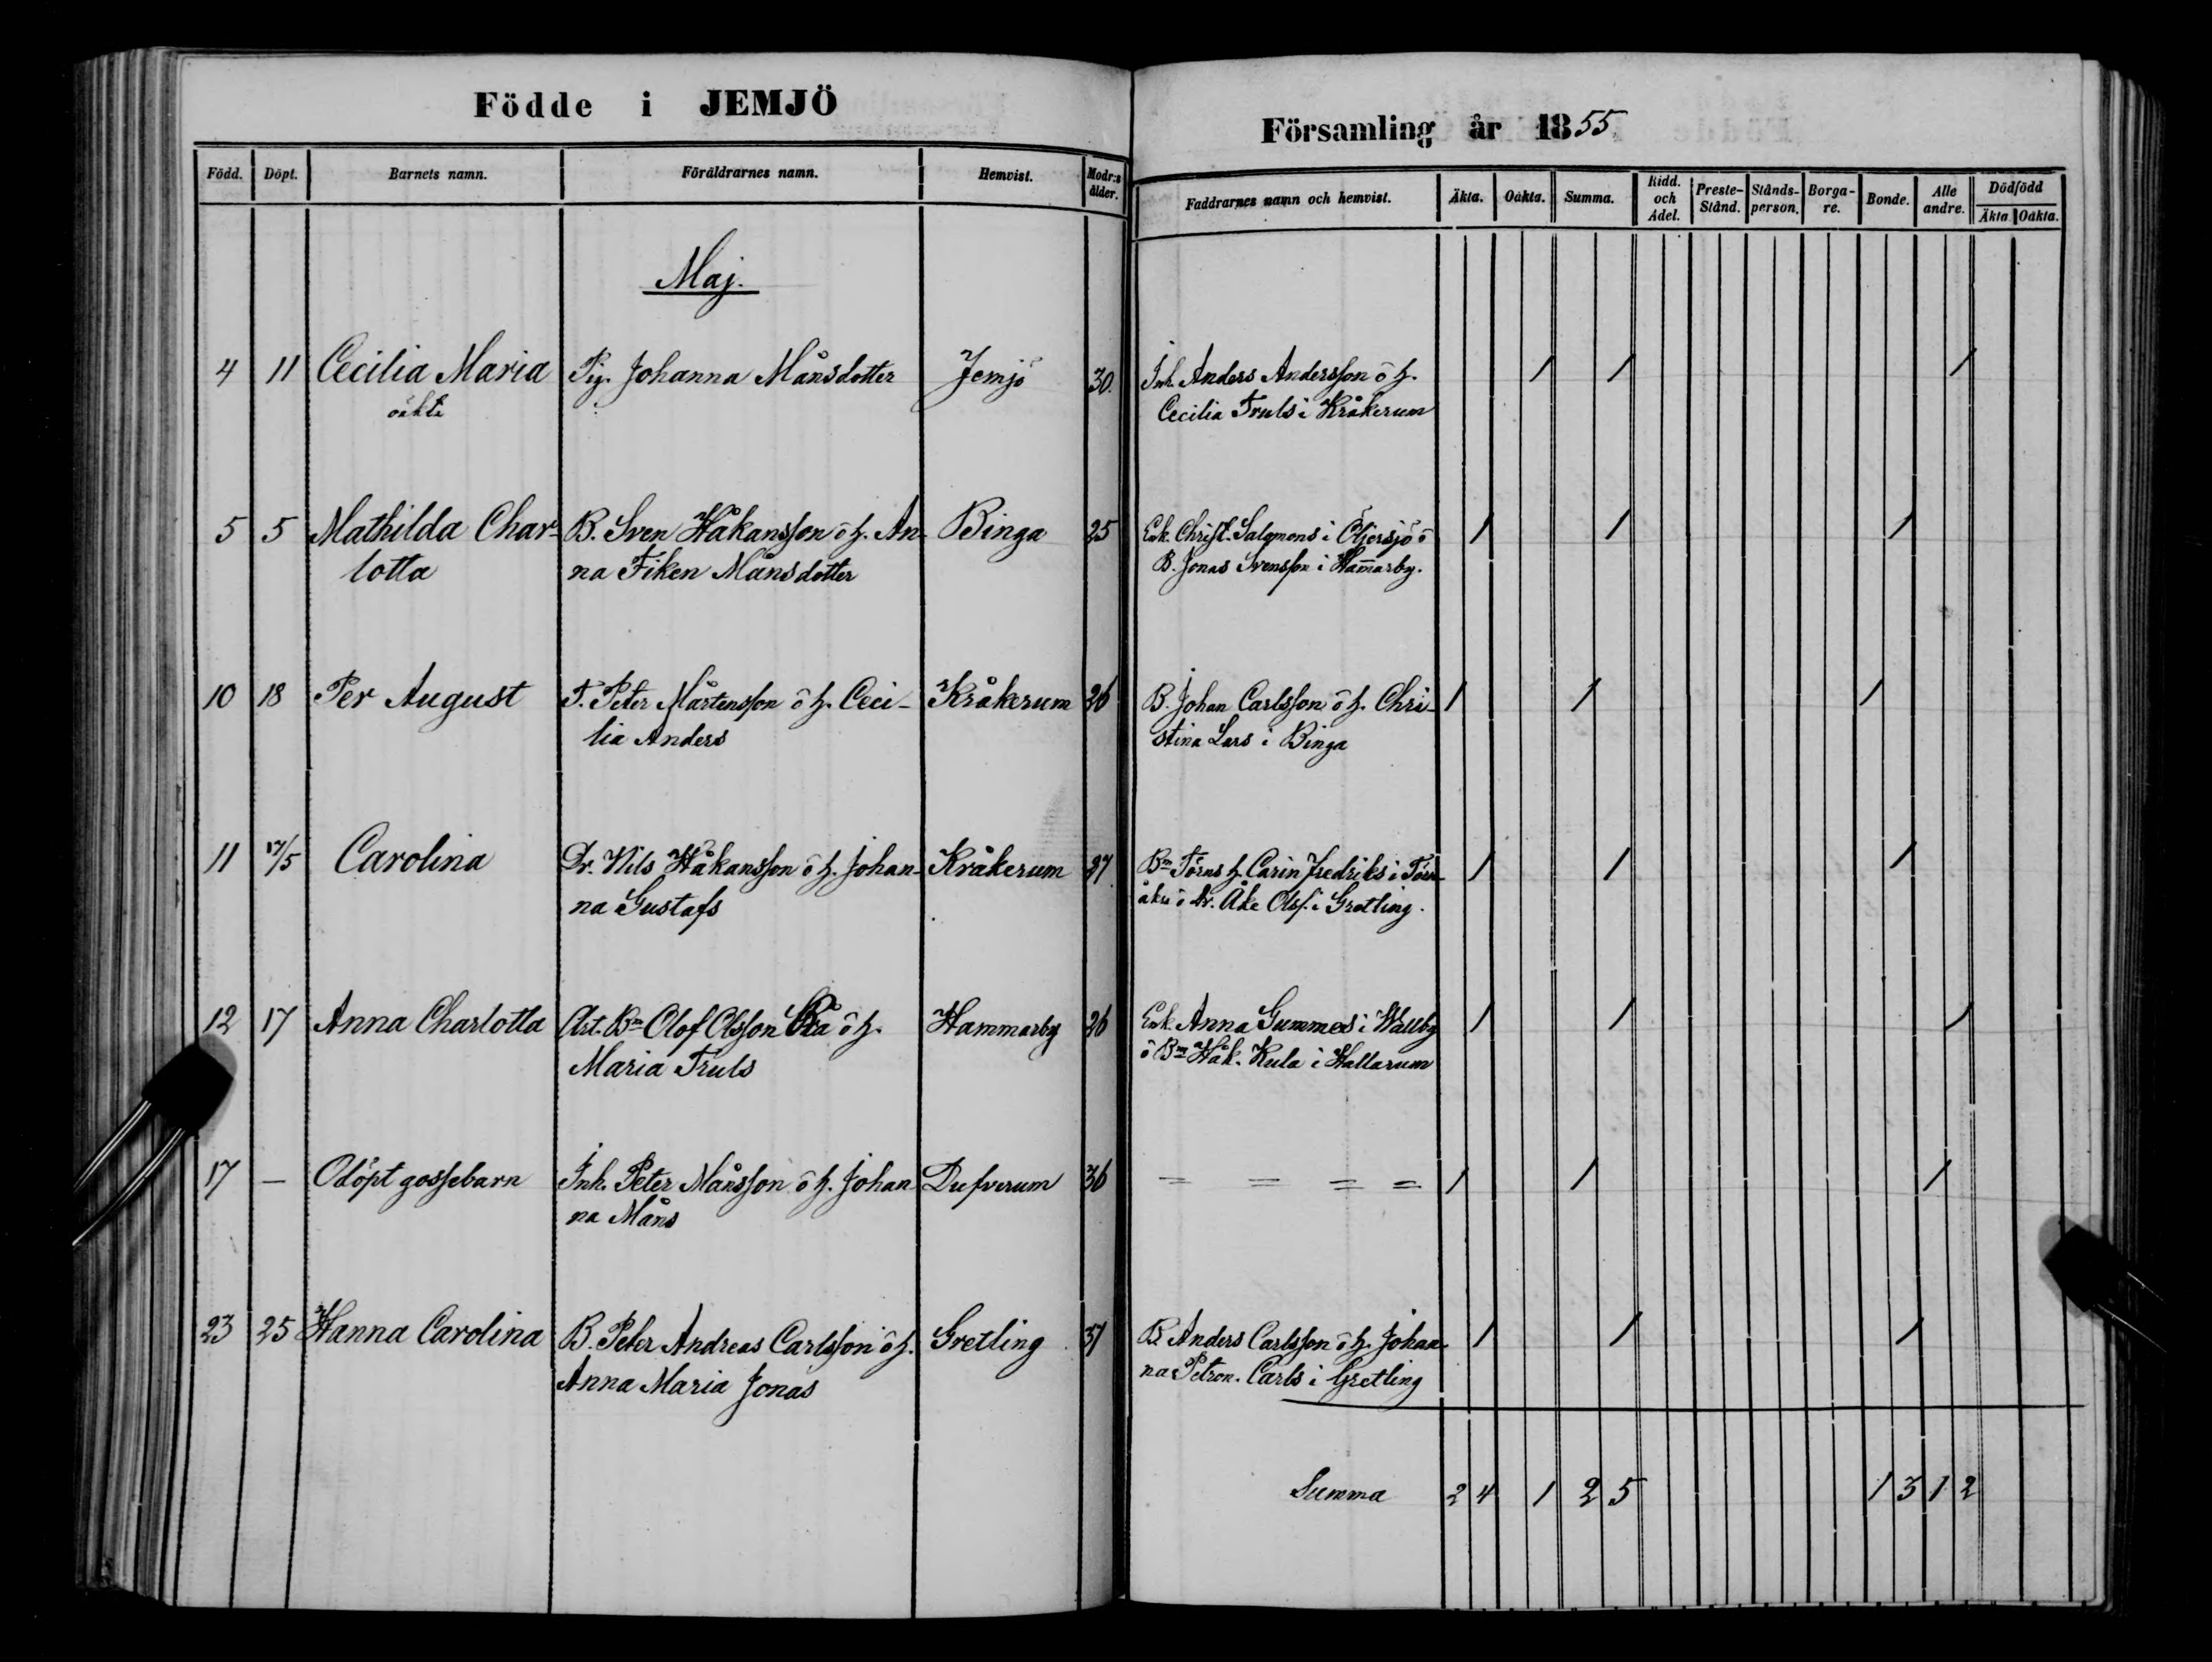 Födde i JEMJÖ
Församling år 1855
Född. Döpt. Barnets namn. Föräldrarnes namn. Hemvist. Modr:s ålder. Faddrarnes namn och hemvist. Äkta. Oäkta. Summa. Ridd. och Adel. Preste-Stånd. Stånds-person. Borga-re. Bonde. Alle andre. Dödfödd Äkta Oäkta.
Maj.
4 11 Cecilia Maria Pig. Johanna Månsdotter Jemjö 30. Inh. Anders Andersson ö h. 1 1 1
oäkta Cecilia Truls i Kråkerum
5 5 Mathilda Char- B. Sven Håkansson ö h. An- Binga 25 Enk. Christ. Salomons i Öljersjö ö 1 1 1
lotta na Fiken Månsdotter B. Jonas Svensson i Ham̄arby.
10 18 Per August T. Peter Mårtensson ö h. Ceci- Kråkerum 26 B. Johan Carlsson ö h. Chri- 1 1 1
lia Anders stina Lars i Binga
11 17/5 Carolina Dr. Nils Håkansson ö h. Johan- Kråkerum 27 Bm Törns h. Carin Fredriks i Törn- 1 1 1
na Gustafs åkra ö dr. Åke Olss. i Gretling.
12 17 Anna Charlotta Art. Bm Olof Olsson Bra ö h. Hammarby 26 Enk. Anna Gummes i Wallby 1 1 1
Maria Truls ö Bm Håk. Kula i Hallarum
17 – Odöpt gossebarn Inh. Peter Månsson ö h. Johan- Dufverum 36 = = = = 1 1 1
na Måns
23 25 Hanna Carolina B. Peter Andreas Carlsson ö h. Gretling 37 B. Anders Carlsson ö h. Johan- 1 1 1
Anna Maria Jonas na Petron. Carls i Gretling
Summa 24 1 25 13 12